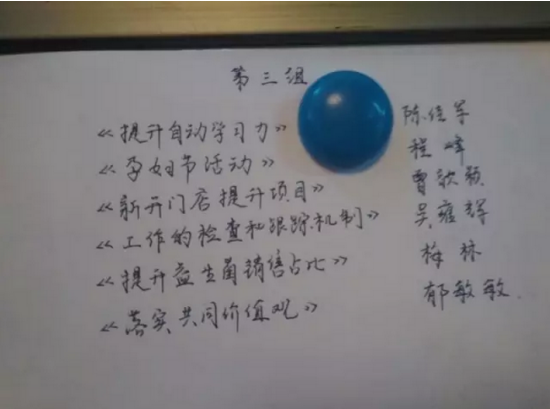 第三组
《提升自动学习力》 陈佳军
《孕妇节活动》 程峰
《新开门店提升项目》 曾歆颖
《工作的检查和跟踪机制》 吴雍辉
《提升益生菌销售占比》 梅林
《落实共同价值观》 郁敏敏.